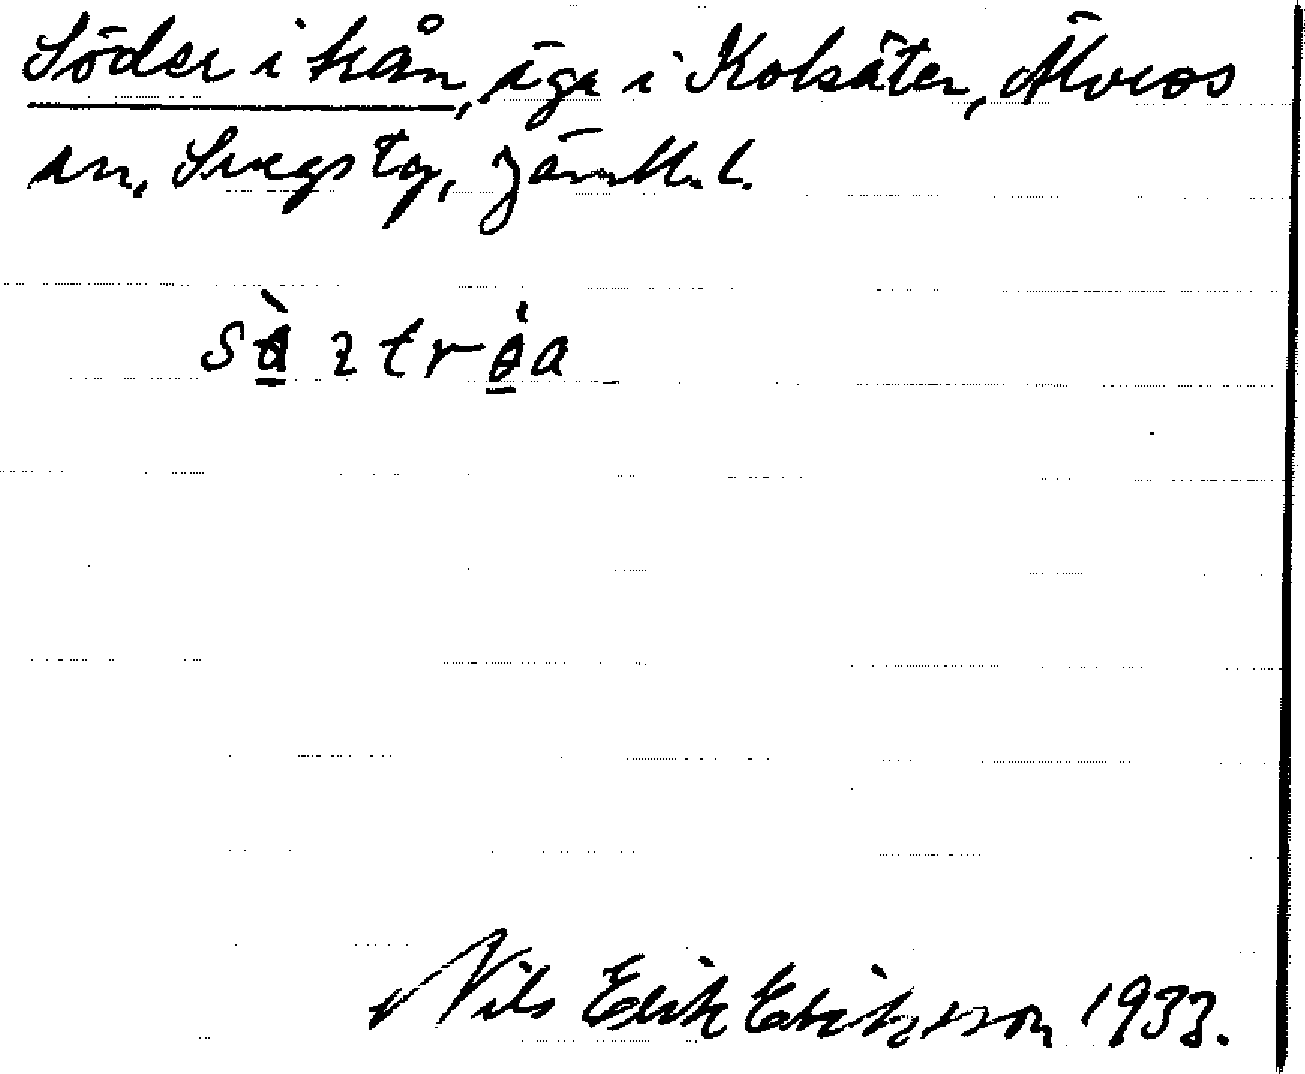 Söder i kån, äga i Kolsäter, Älvros
sn, Svegs tg, Jämtl. l.
Nils Erik Eriksson 1933.